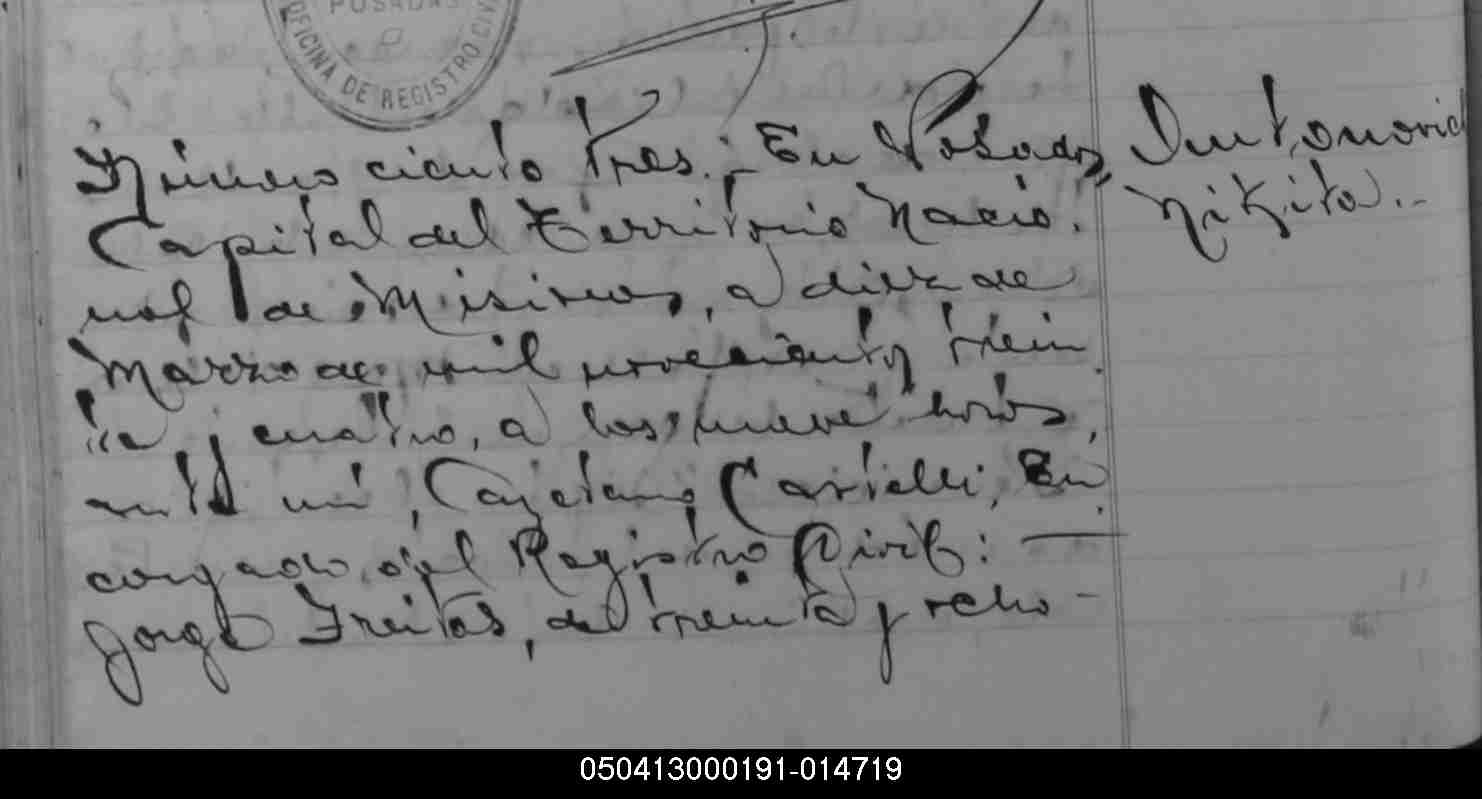 POSADAS
OFICINA DE REGISTRO CIVIL
Número ciento tres.- En Posadas,
Capital del Territorio Nacio-
nal de Misiones, a diez de
Marzo de mil novecientos trein-
ta y cuatro, a las nueve horas,
ante mi, Cayetano Castelli, En-
cargado del Registro Civil: —
Jorge Freitas, de treinta y ocho -
Nikita..-
050413000191-014719